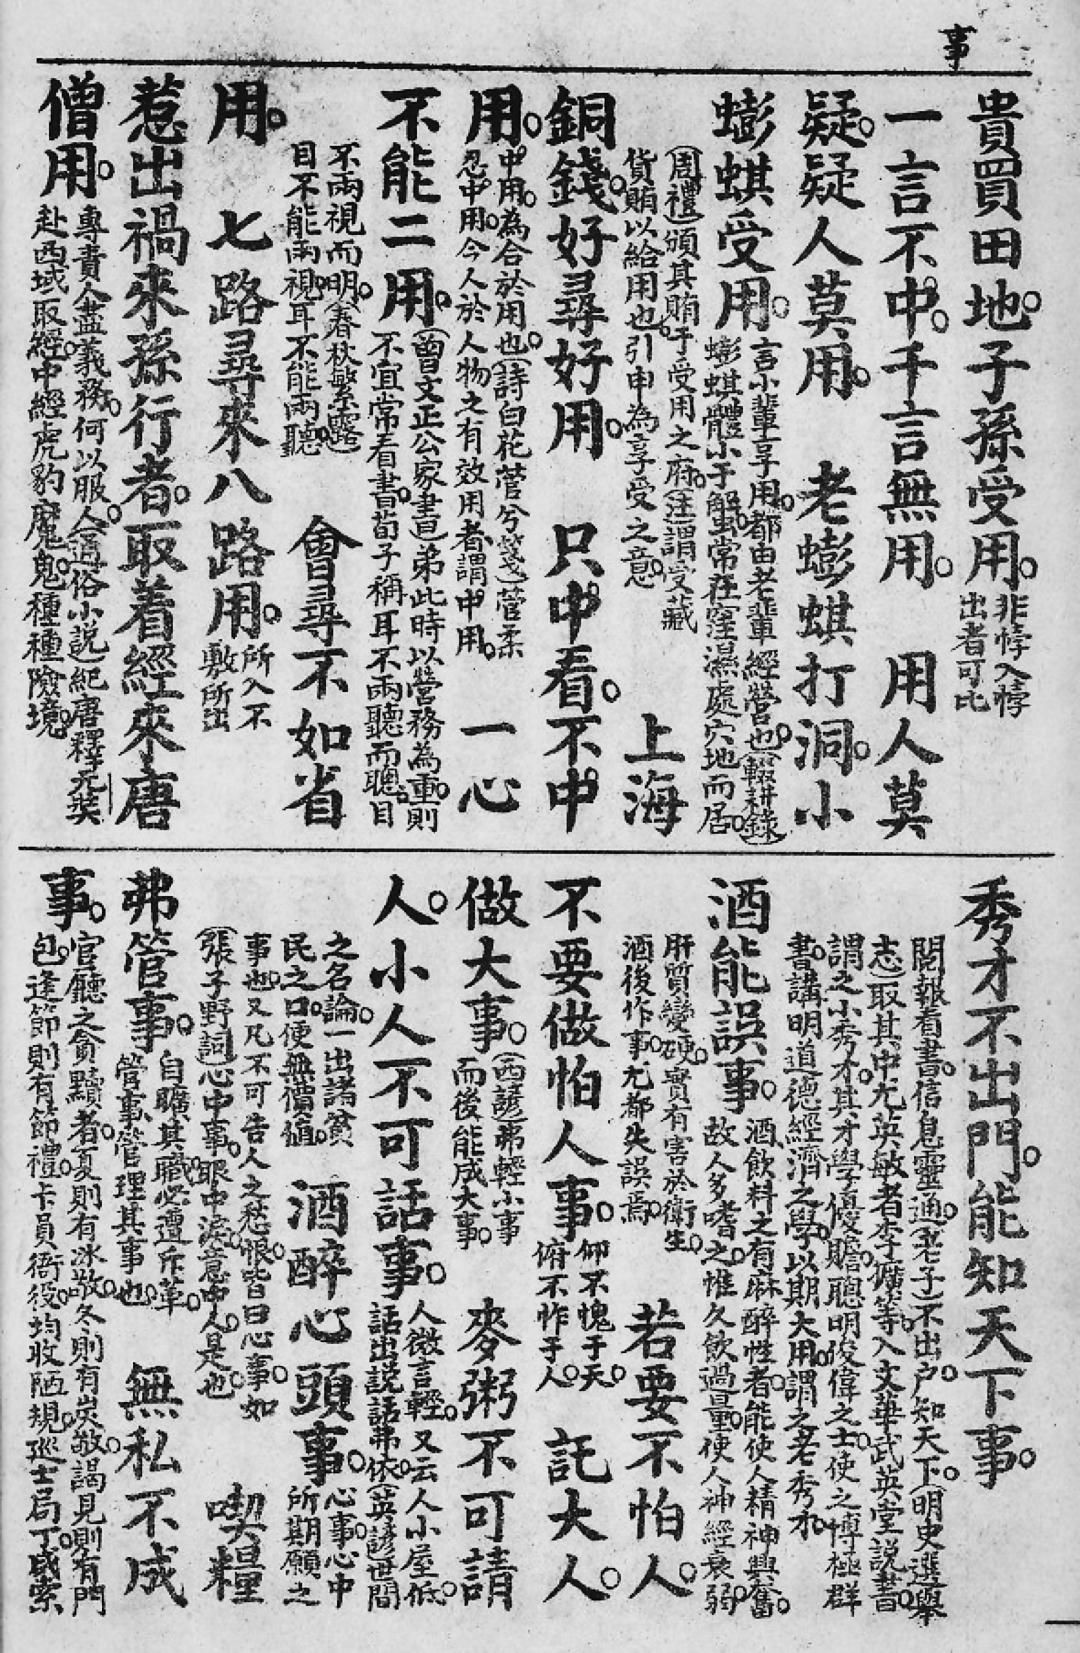 事
貴買田地。子孫受用。非悖入悖
出者可比
一言不中。千言無用。　用人莫
疑。疑人莫用。　老蟛蜞打洞。小
蟛蜞受用。言小輩享用。都由老輩經營也。(輟耕錄)
蟛蜞體小于蟹。常在窪濕處穴地而居。
(周禮)頒其賄于受用之府。(注)謂受藏
貨賄以給用也。引申為享受之意。　上海
銅錢。好尋好用。　只中看。不中
用。中用。為合於用也。(詩白花菅兮箋)菅柔
忍中用。今人於人物之有效用者。謂中用。　一心
不能二用。(曾文正公家書)弟此時以營務為重。則
不宜常看書。荀子稱耳不兩聽而聰。目
不兩視而明。(春秋繁露)
目不能兩視。耳不能兩聽。　會尋不如省
用。　七路尋來八路用。所入不
敷所出
惹出禍來孫行者。取着經來唐
僧用。專責人盡義務。何以服人。通俗小說紀唐釋元奘
赴西域取經。中經虎豹魔鬼。種種險境。
秀才不出門。能知天下事。
閱報看書。信息靈通。(老子)不出户。知天下。(明史選舉
志)取其中尤英敏者李擴等。入文華武英堂說書。
謂之小秀才。其才學優贍。聰明俊偉之士。使之博極群
書。講明道德經濟之學。以期大用。謂之老秀才。
酒能誤事。酒飲料之有麻醉性者。能使人精神興奮。
故人多嗜之。惟久飲過量。使人神經衰弱。
肝質變硬。實有害於衛生。
酒後作事。尤都失誤焉。　若要不怕人。
不要做怕人事。仰不愧于天。
俯不怍于人。　託大人。
做大事。(西諺)弗輕小事
而後能成大事。　麥粥不可請
人。小人不可話事。人微言輕。又云人小屋低。
話出說話弗依。(英諺)世間
之名論。一出諸貧
民之口。便無價值。　酒醉心頭事。心事。心中
所期願之
事也。又凡不可告人之愁恨。皆曰心事。如
(張子野詞)心中事。眼中淚。意中人。是也。　喫糧
弗管事。自曠其職。必遭斥革。
管事。管理其事也。　無私不成
事。官廳之貪黷者。夏則有冰敬。冬則有炭敬。謁見則有門
包。逢節則有節禮。卡員衙役。均收陋規。巡士局丁。咸索